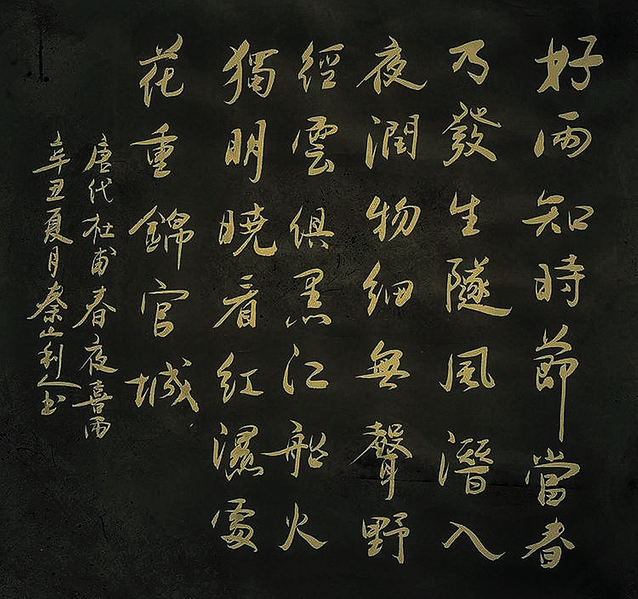 好雨知時節當春
乃發生隨風潛入
夜潤物細無聲野
經雲俱黑江船火
獨明曉看紅濕處
花重錦官城
唐代杜甫春夜喜雨
辛丑夏月秦山利人书